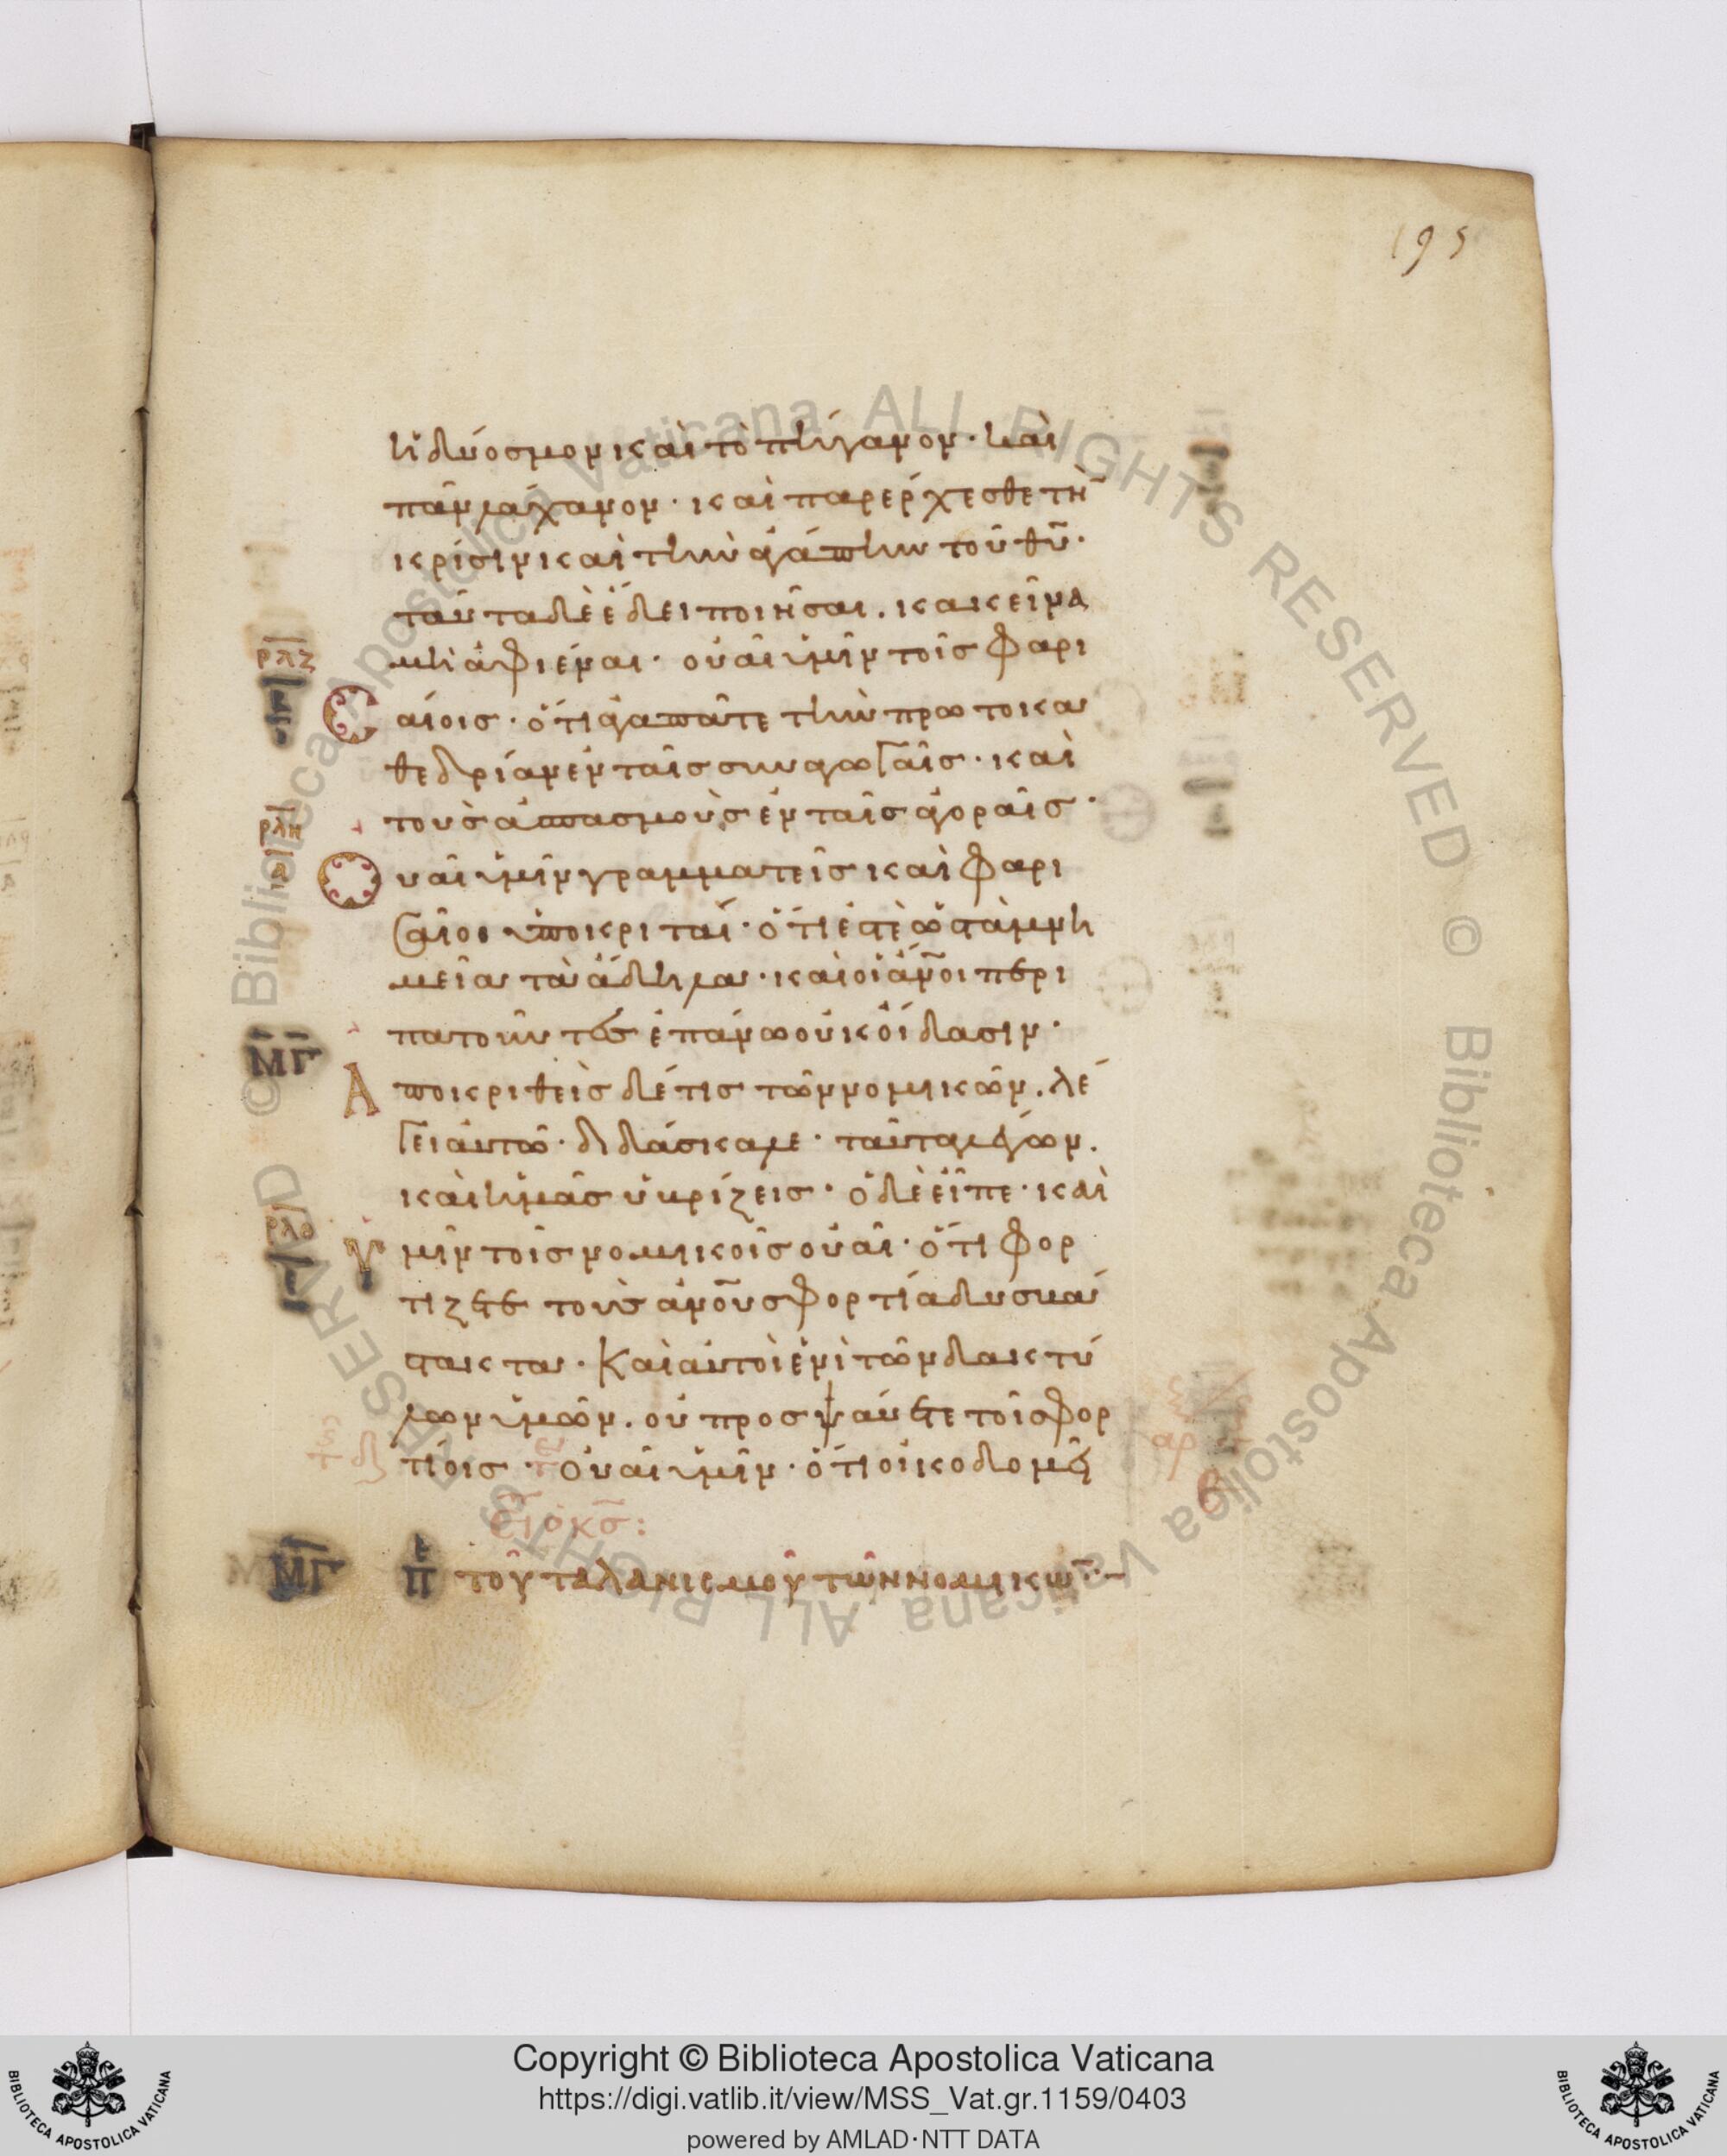 195
ἡδύοσμον καὶ τὸ πήγανον· καὶ
πᾶν λάχανον· καὶ παρέρχεσθε τὴν
κρίσιν καὶ τὴν ἀγάπην τοῦ θῡ·
ταῦτα δὲ ἔδει ποιῆσαι. κακεῖνα
μὴ ἀφιέναι· οὐαὶ ὑμῖν τοῖς φαρι
ρλζ
Cαίοις· ὅτι ἀγαπᾶτε τὴν πρωτοκα
θεδρίαν ἐν ταῖς συναγωγαῖς· καὶ
τοὺς ἀσπασμοὺς ἐν ταῖς ἀγοραῖς·
ρλη
Οὐαὶ ὑμῖν γραμματεῖς καὶ φαρι
σαῖοι ὑποκριταί· ὅτι ἐστὲ ὡς τὰ μνη
μεῖα τὰ ἄδηλα· καὶ οἱ ἄνοι περι
πατοῦντες ἐπάνω οὐκ οἴδασιν·
ΜΓ
Ἀποκριθεὶς δέ τις τῶν νομικῶν. λέ
γει αὐτῶ· διδάσκαλε· ταῦτα λέγων.
καὶ ἡμᾶς ὑβρίζεις· ὁ δὲ εἶπε· καὶ
ρλθ
Ὑμῖν τοῖς νομικοῖς οὐαὶ· ὅτι φορ
τίζετε τοὺς ἀνους φορτία δυσβά
στακτα· καὶ αὐτοὶ ἑνὶ τῶν δακτύ
λων ὑμῶν. οὐ προσψαύετε τοῖς φορ
τίοις· οὐαὶ ὑμῖν· ὅτι οἰκοδομεῖ
εἶ ὁ κς:
ΜΓ πε τοῦ ταλανισμοῦ τῶν νομικῶ
Copyright © Biblioteca Apostolica Vaticana
https://digi.vatlib.it/view/MSS_Vat.gr.1159/0403
powered by AMLAD·NTT DATA
BIBLIOTECA APOSTOLICA VATICANA
BIBLIOTECA APOSTOLICA VATICANA
© Biblioteca Apostolica Vaticana ALL RIGHTS RESERVED
© Biblioteca Apostolica Vaticana ALL RIGHTS RESERVED